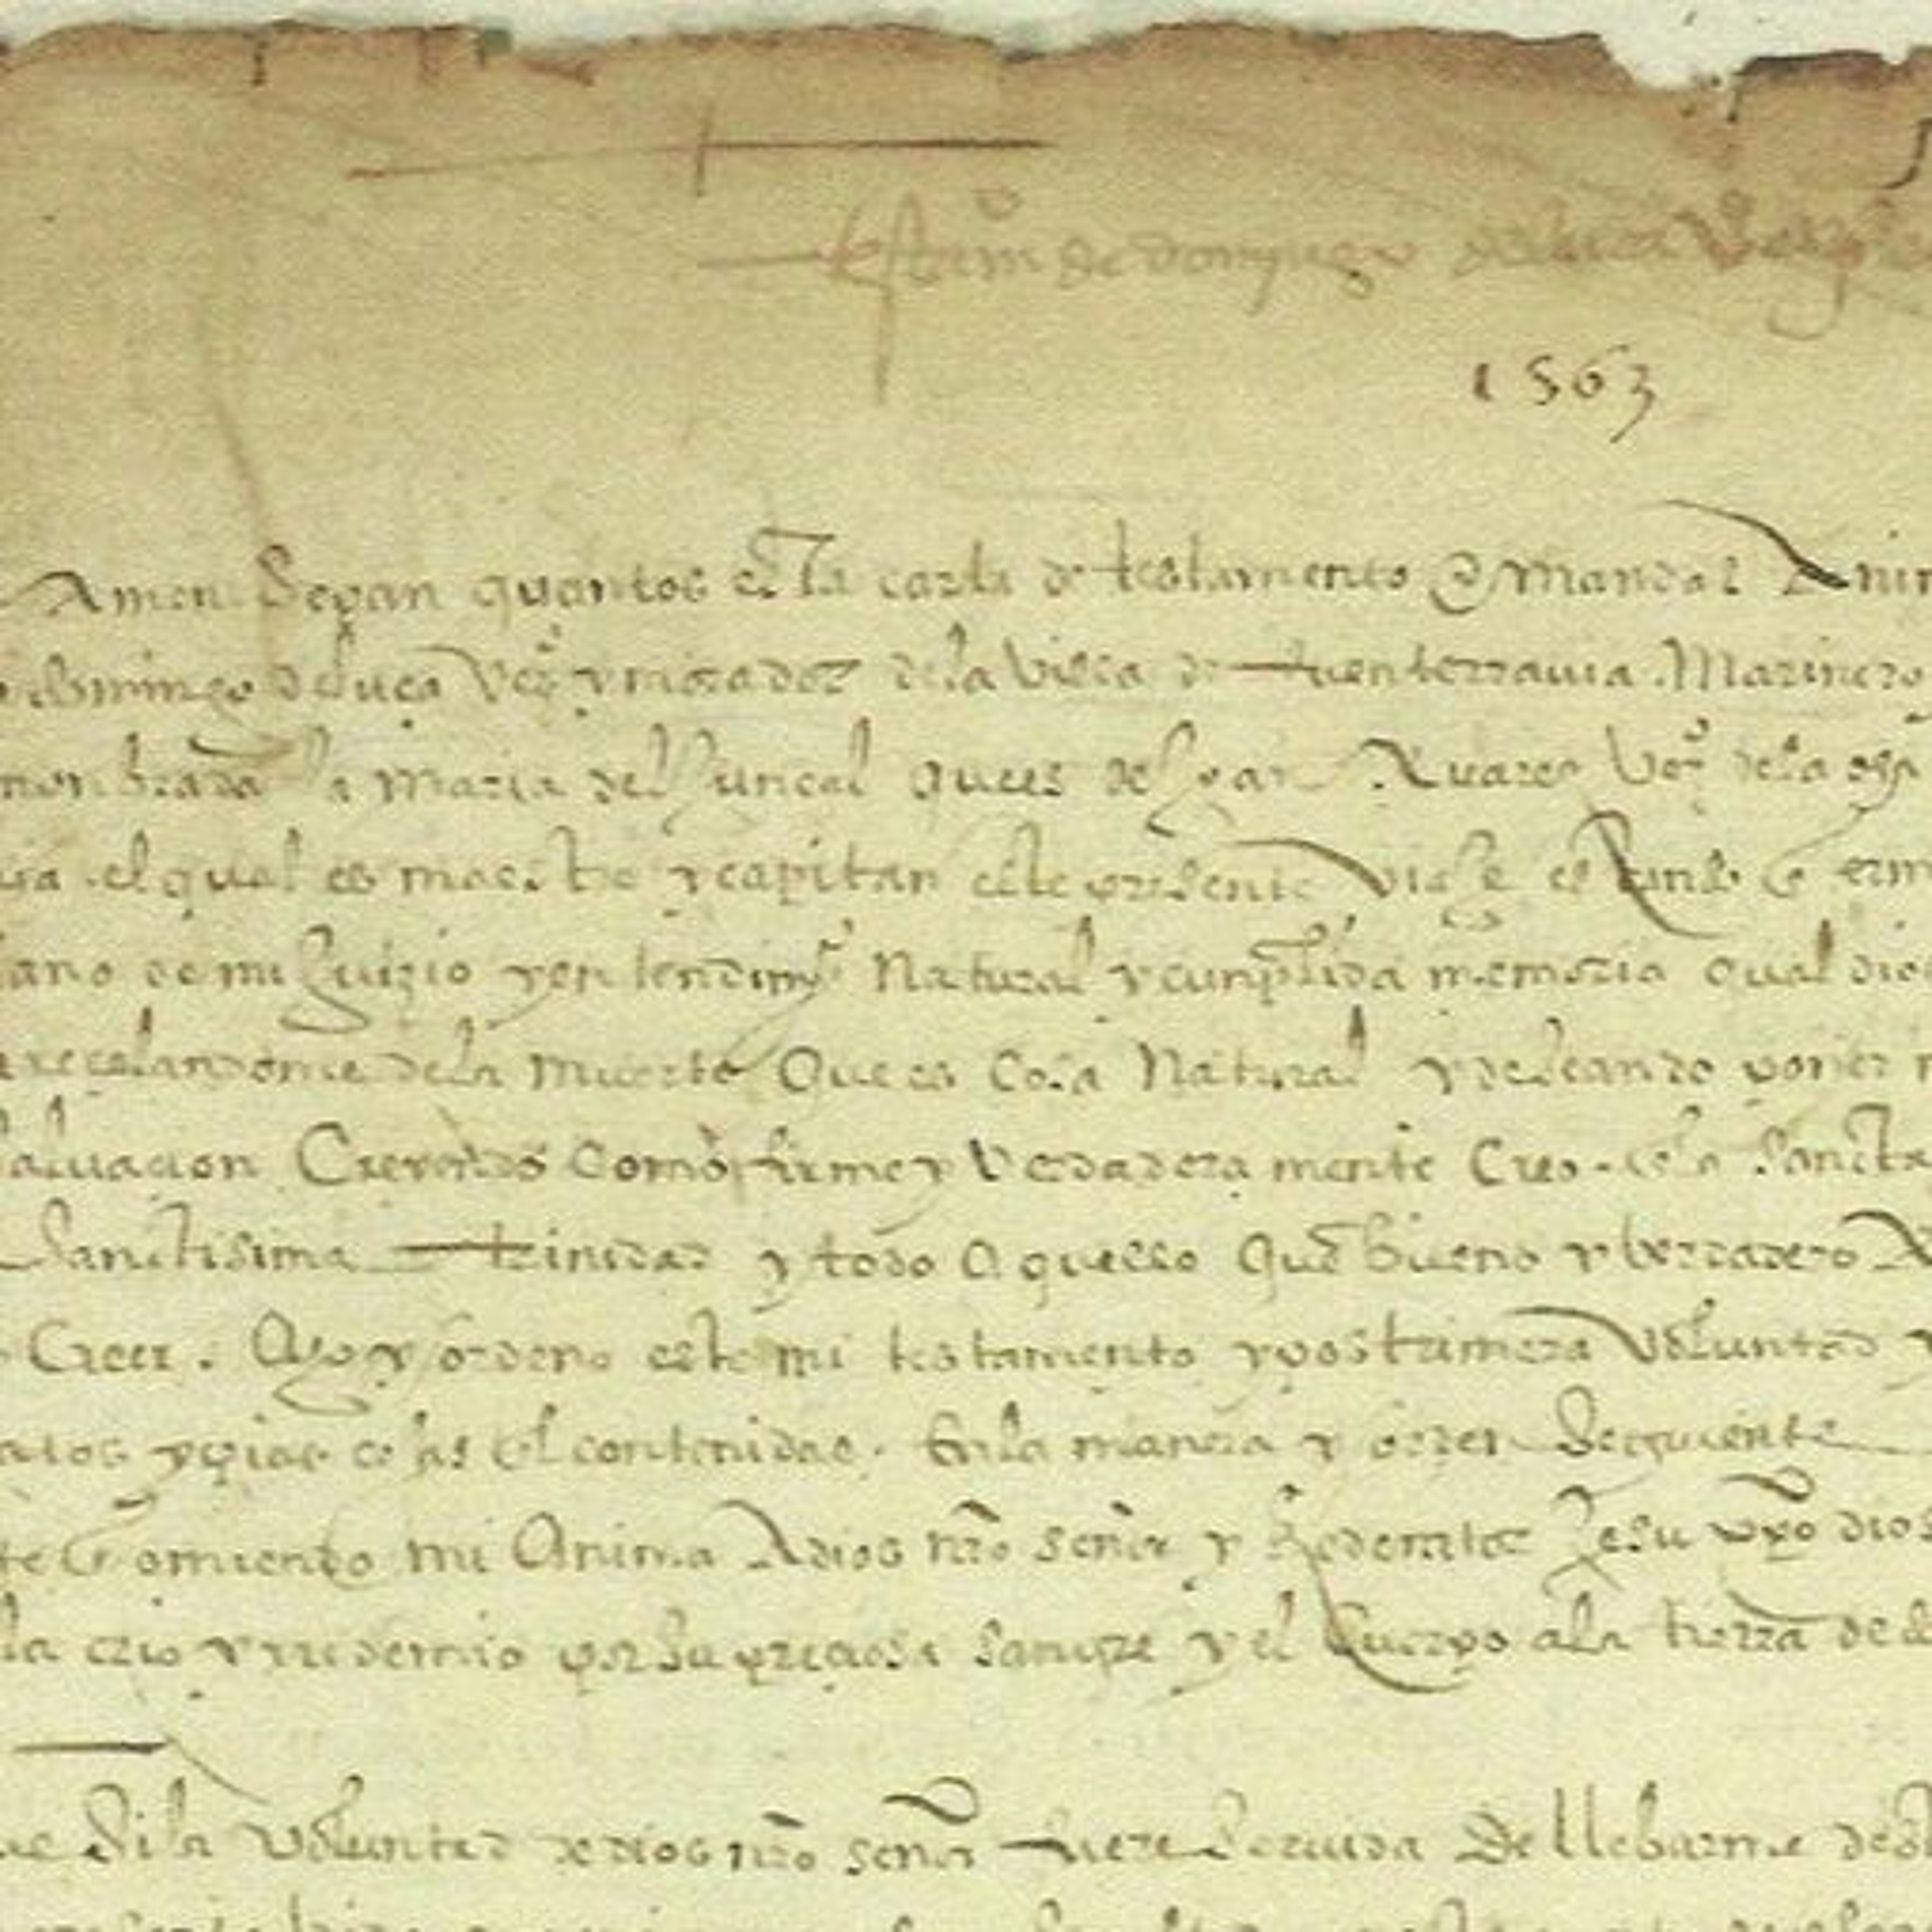 testam̃ de domingo de luça
1563
Amen Sepan quantos esta carta de testamento e manda
domingo deluça vezº y morador dela villa de fuenterravia Marinero
nonbrada la maria del Juncal ques de Joan Xuarez vezº dela
el qual es maestre y capitan este presente viaje estando enfermo
sano de mi Juizio y entendimyº Natural y cumplida memoria qual dios
recelandome dela muerte Que es Cosa Natural y deseando poner
salvacion Creyendo como firme y Verdadera mente Creo en la sancta
sanctisima trinidad y todo aquello que bueno y verdadero
Creer. Ago y ordeno este mi testamento y postrimera voluntad y
y pias cosas en el contenidas. En la manera y orden seguiente
comiendo mi Anima A dios nr̃o señor y Redemtor Jesu xp̃o dios
la crio y rredemio por su preciosa sangre y el Cuerpo a la tierra de
que Si la voluntad de dios nr̃o señor fuere servida De llebarme